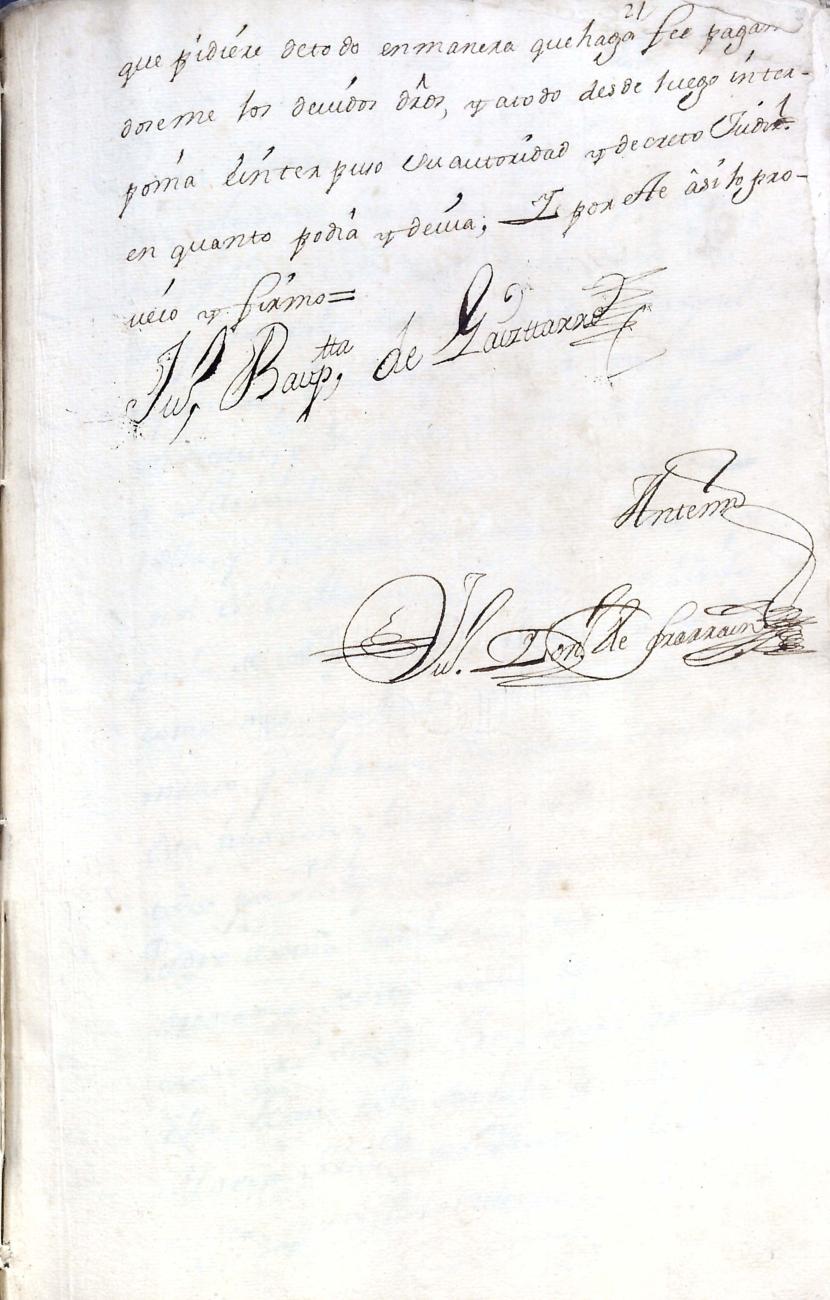 21
que pidiére detodo enmanera quehaga fee pagan
doseme los devidos dr̂os, y atodo desde luego ínter-
ponia êinterpuso su autoridad y decreto Judi.l
en quanto podía y devia; I por este âsi lo pro-
veio y firmo=
Ju.n Baup.tta de
Antemi
Ju.n Dom.o de Larrain